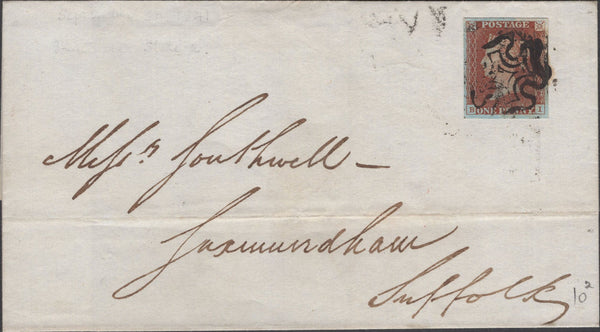 POSTAGE
B ONE PENNY I
Mess.rs Southwell —
Saxmundham
Suffolk
10 2